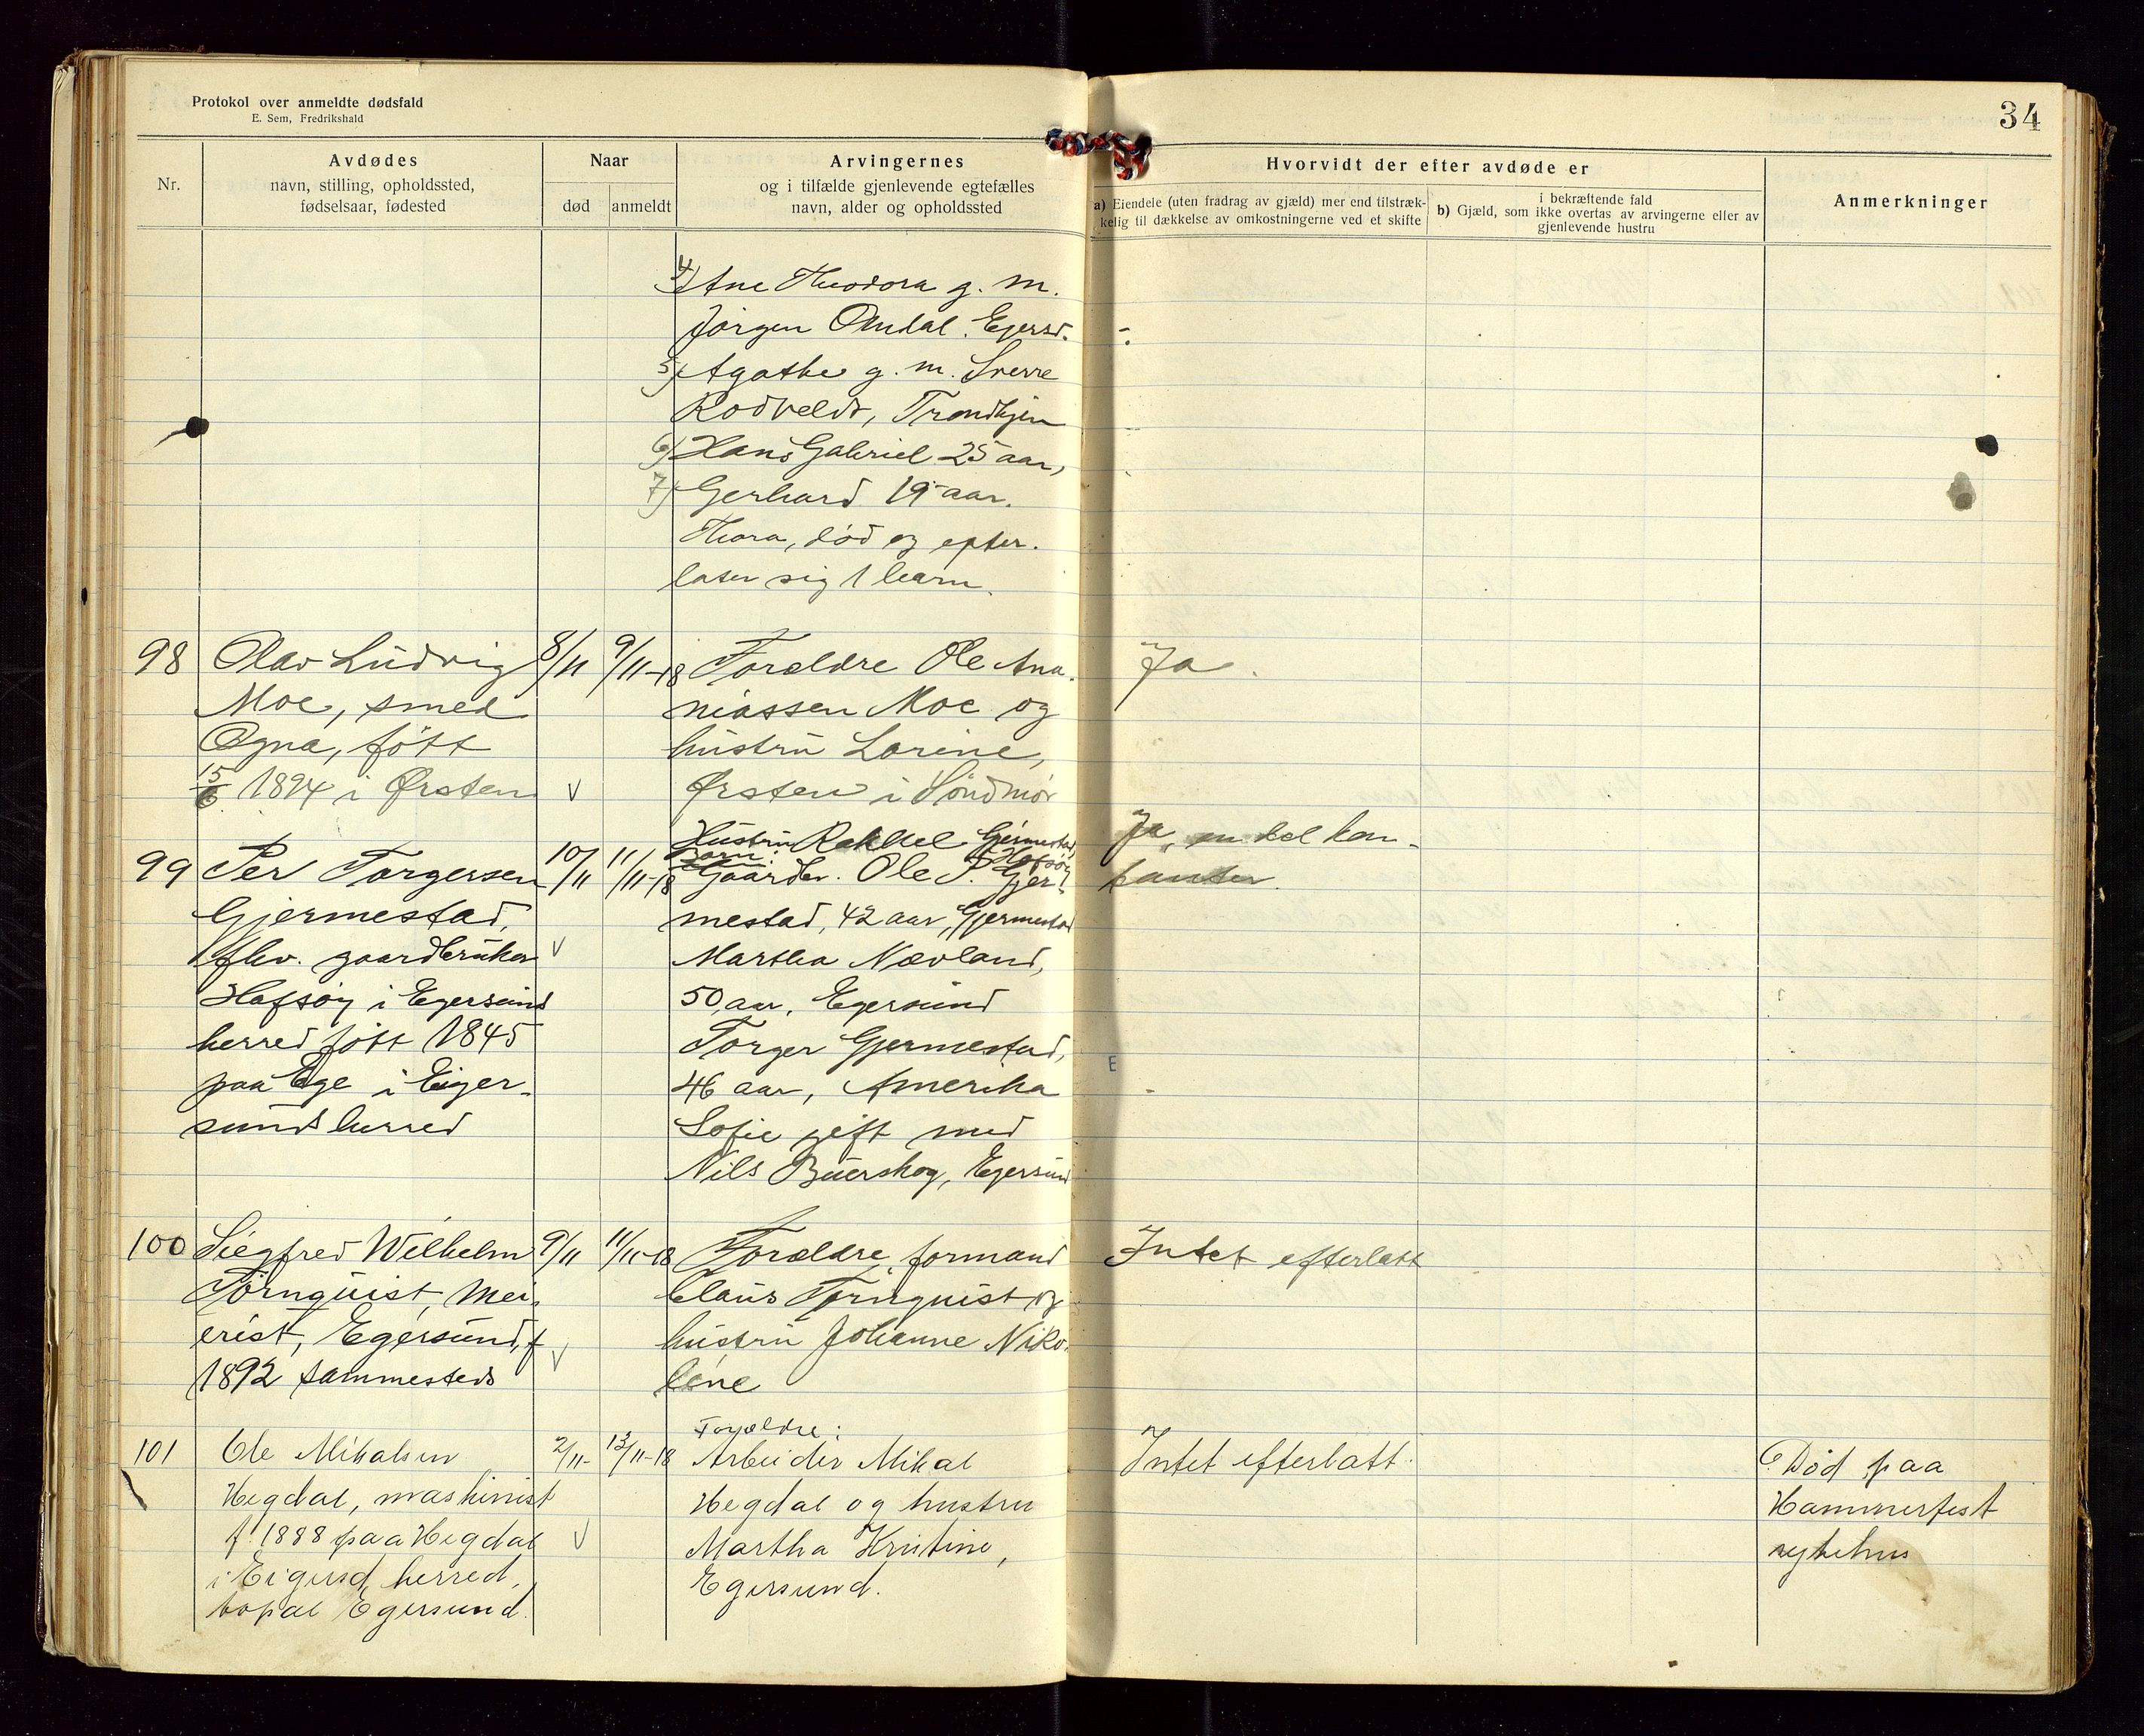 Protokol over anmeldte dødsfald
E. Sem, Fredrikshald
34
Nr.
Avdødes
navn, stilling, opholdssted,
fødselsaar, fødested
Naar
død
anmeldt
Arvingernes
og i tilfælde gjenlevende egtefælles
navn, alder og opholdssted
Hvorvidt der efter avdøde er
a) Eiendele (uten fradrag av gjæld) mer end tilstræk-
kelig til dækkelse av omkostningerne ved et skifte
i bekræftende fald
b) Gjæld, som ikke overtas av arvingerne eller av
gjenlevende hustru
Anmerkninger
4) Ane Theodora g. m.
Jörgen Omdal, Egersd.
5) Agathe g. m. Sverre
Rodveldt, Trondhjem
6) Hans Gabriel 25 aar,
7) Gerhard 19 aar.
Thora, död og efter-
later sig 1 barn.
98
Olav Ludvig
Moe, smed
Ogna, fött
15/6 1894 i Ørsten
8/11
9/11-18
Forældre Ole Ana-
niassen Moe og
hustru Lorine,
Ørsten i Söndmör
Ja.
99
Per Torgersen
Gjermestad,
fhv. gaardbruker
Hafsöy i Egersund
herred fött 1845
paa Ege i Eiger-
sunds herred
10/11
11/11-18
Hustru Rakkel Gjermestad,
Hafsöy
Barn:
Gaardbr. Ole P. Gjer-
mestad, 42 aar, Gjermestad
Martha Nævland,
50 aar, Egersund
Torger Gjermestad,
46 aar, Amerika
Sofie gift med
Nils Buerskog, Egersund
Ja, en del kon-
tanter.
E
100
Siegfred Wilhelm
Törnquist, mei-
erist, Egersund, f
1892 sammesteds
9/11
11/11-18
Forældre, formand
Claus Törnquist og
hustru Johanne Niko-
line
Intet efterlatt
101
Ole Mikalsen
Hegdal, maskinist
f. 1888 paa Hegdal
i Eigersd. herred,
bopæl Egersund.
2/11-
13/11-18
Forældre:
Arbeider Mikal
Hegdal og hustru
Martha Kristine,
Egersund.
Intet efterlatt.
Død paa
Hammerfest
sykehus